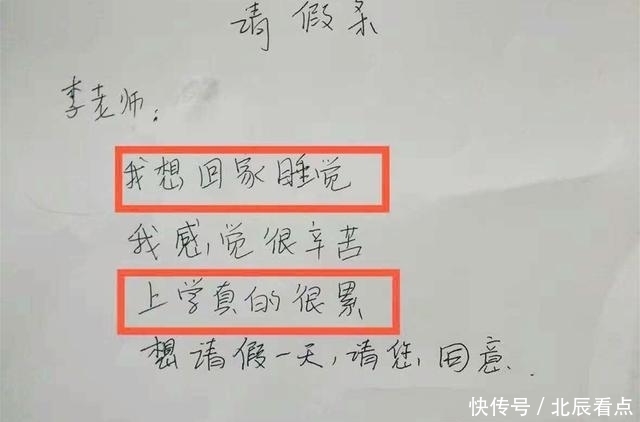 请假条
李老师：
我想回家睡觉
我感觉很辛苦
上学真的很累
想请假一天，请您回意.
快传号／北辰看点